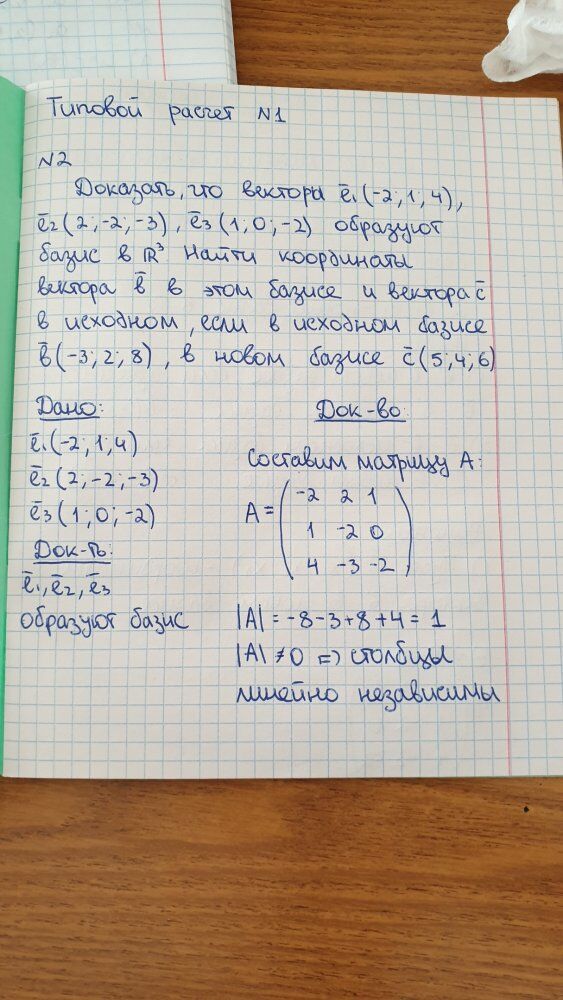 Типовой расчет N1
N2
Доказать, что вектора ē₁(-2; 1; 4),
ē₂(2; -2; -3), ē₃(1; 0; -2) образуют
базис в ℝ³ Найти координаты
вектора b̄ в этом базисе и вектора c̄
в исходном, если в исходном базисе
b̄(-3; 2; 8), в новом базисе c̄(5; 4; 6)
Дано:
ē₁(-2; 1; 4)
ē₂(2; -2; -3)
ē₃(1; 0; -2)
Док-ть:
ē₁, ē₂, ē₃
образуют базис
Док-во:
Составим матрицу A:
-2 2 1
A = 1 -2 0
4 -3 -2
|A| = -8-3+8+4 = 1
|A| ≠ 0 => столбцы
линейно независимы